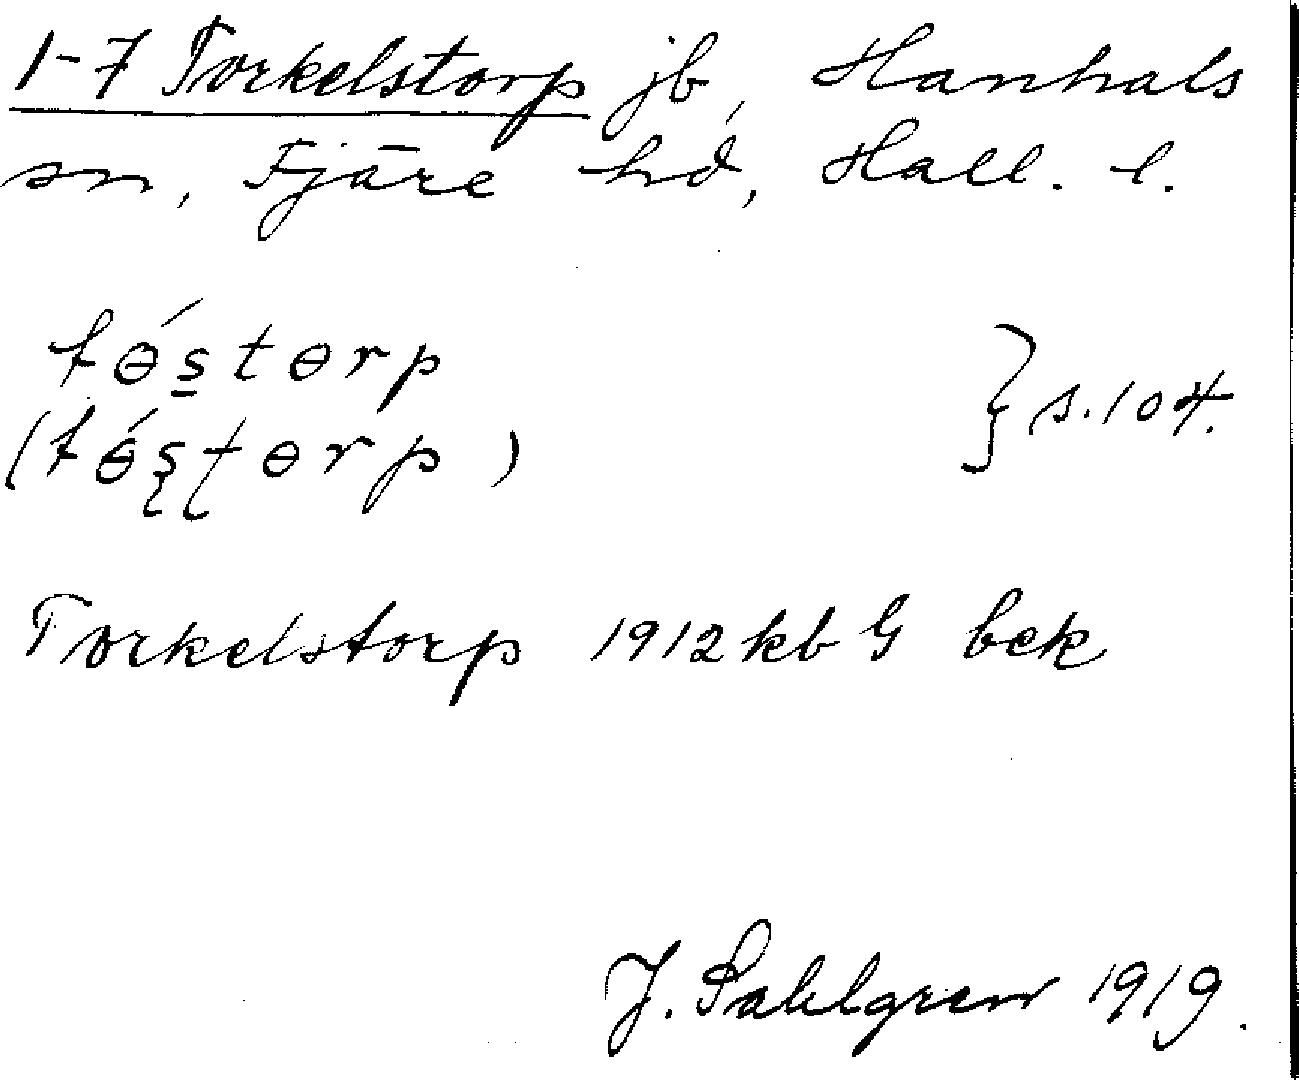 1-7 Torkelstorp jb, Hanhals
sn, Fjäre hd, Hall. l.
tɵ́s̲tɵrp
(tɵ́ʂʈɵrp)
} s. 104.
Torkelstorp 1912 kb G bek
J. Sahlgren 1919.